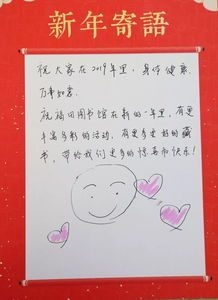 新年寄語
祝大家在2019年里，身体健康、
万事如意。
祝福田图书馆在新的一年里，有更
丰富多彩的活动，有更多更好的藏
书，带给我们更多的惊喜和快乐！